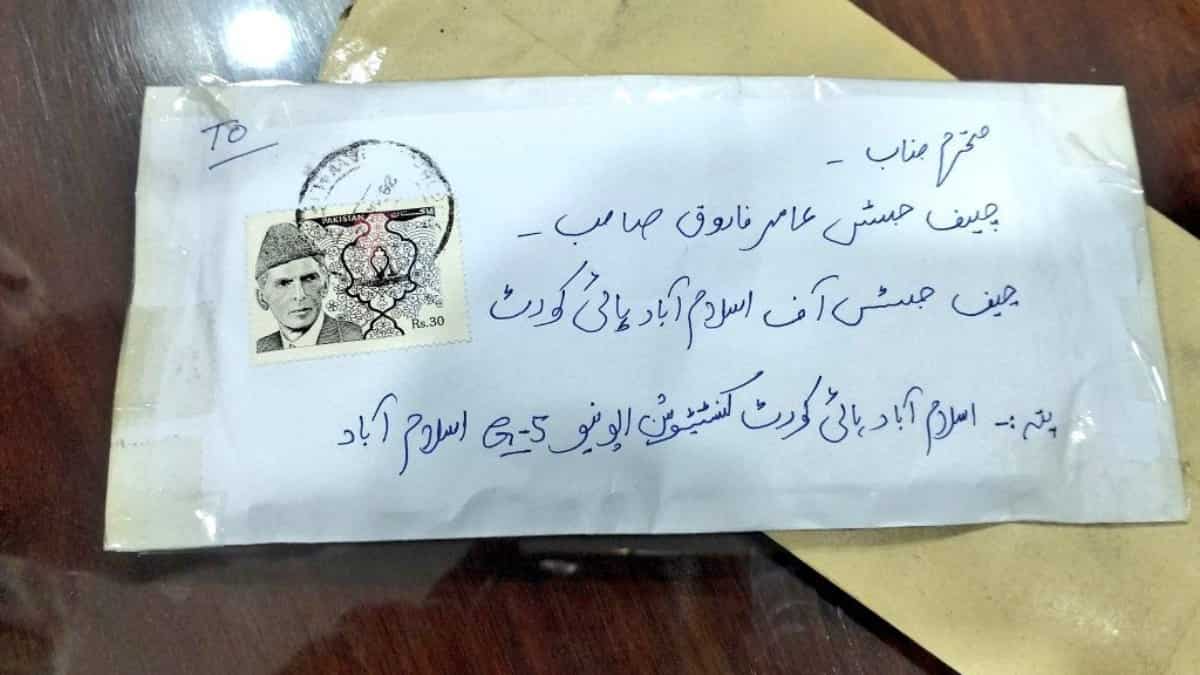 TO
محترم جناب -
چیف جسٹس عامر فاروق صاحب -
چیف جسٹس آف اسلام آباد ہائی کورٹ
پتہ :- اسلام آباد ہائی کورٹ کنسٹیٹیوشن ایونیو G-5 اسلام آباد
PAKISTAN پاکستان
Rs.30